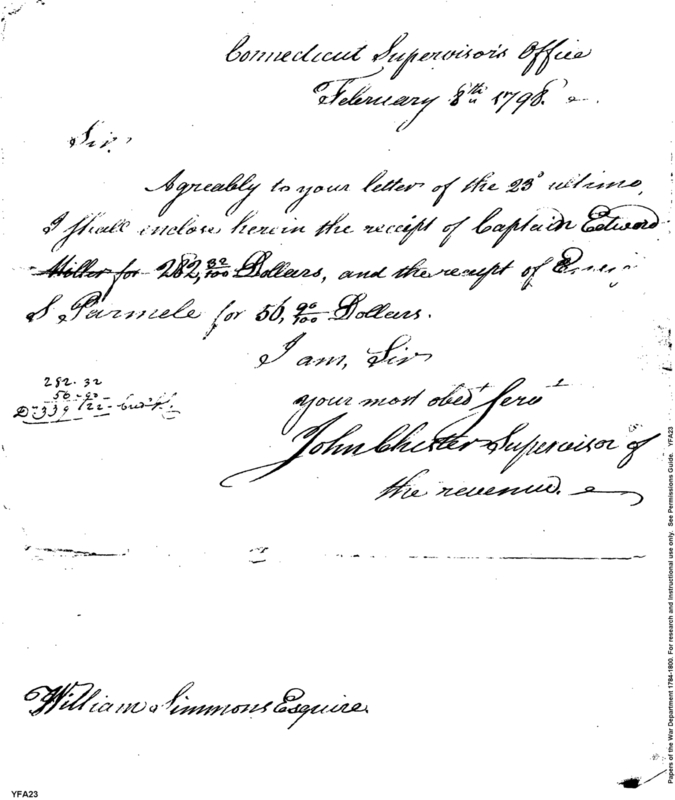 Connecticut Supervisor's Office
February 8th 1798.
Sir
Agreably to your letter of the 23d ultimo,
I shall inclose herein the receipt of Captain Edward
Miller for 282,32/100 Dollars, and the receipt of
S. Parmele for 56,90/100 Dollars.
I am, Sir
your most obedt Servt
John Chester Supervisor of
the revenue.
282.32
56.90
D 339.22
William Simmons Esquire
Papers of the War Department 1784-1800. For research and instructional use only. See Permissions Guide. YFA23
YFA23